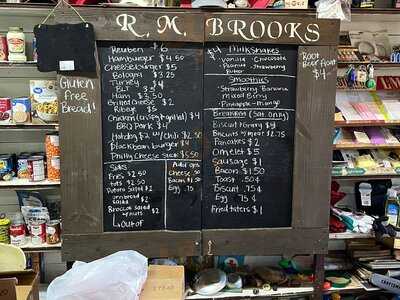 R. M. BROOKS
Reuben $6
Hamburger $4.50
Cheeseburger $5
Bologna $3.25
Turkey $4
BLT $3
Ham $3.50
Grilled Cheese $2
Ribeye $5
Chicken
BBQ Pork $4
Hotdog $2 w/chili $2.50
Blackbean burger $4
Philly Cheese Steak $5.50
Sides
Fries $2.50
tots $2.50
Potato Salad $2
cornbread salad $2
Broccoli Salad w/nuts $2
Out of
Add ons
Cheese .50
Bacon $1.50
Egg .75
$4 Milkshakes
Vanilla - Chocolate
Peanut - Strawberry
Butter
Smoothies
Strawberry Banana
Mixed Berry
Pineapple - Mango
Breakfast (Sat only)
Biscuit & Gravy
Biscuits w/meat $2.75
Pancakes $2
Omelet $5
Sausage $1
Bacon $1.50
Toast .50¢
Biscuit .75¢
Egg .75¢
Fried taters $1
Gluten
Free
Bread!
Root
Beer Float
$4